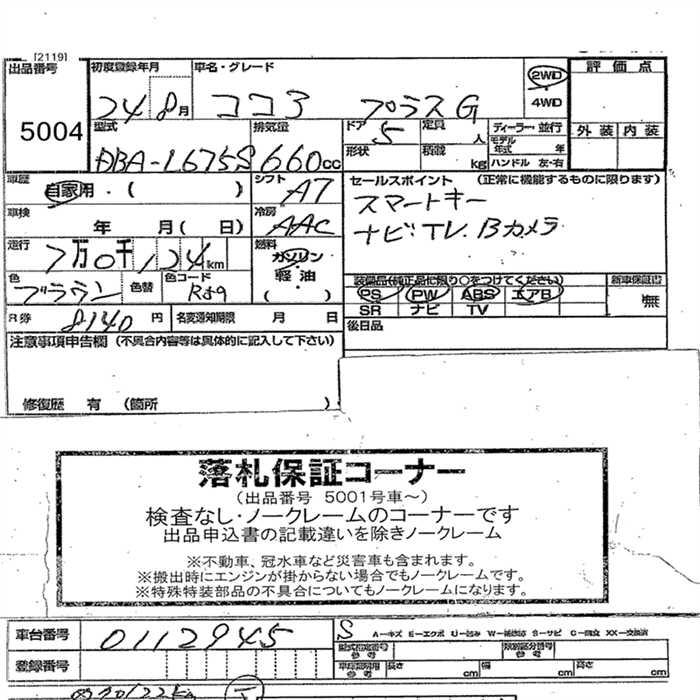 [2119]
出品番号 初度登録年月 車名・グレード 2WD 評価点
24 8月 ココア プラスG 4WD
5004 型式 排気量 ドア 定員 ディーラー・並行 外装 内装
5 人 モデル年式 年
DBA-L675S 660cc 形状 積載 kg ハンドル 左・右
車歴 自家用・( ) シフト AT セールスポイント (正常に機能するものに限ります)
車検 年 月( 日) 冷房 AAC スマートキー
走行 7万0千124km 燃料 ガソリン ナビ.TV.Bカメラ
軽油
色 ブラウン 色替 色コード ( ) 装備品(純正品に限り○をつけてください) 新車保証書
PS PW ABS エアB 無
SR ナビ TV
R券 8140円 名変通知期限 月 日 後日品
注意事項申告欄 (不具合内容等は具体的に記入して下さい)
修復歴 有 (箇所 )
落札保証コーナー
(出品番号 5001号車~)
検査なし・ノークレームのコーナーです
出品申込書の記載違いを除きノークレーム
※不動車、冠水車など災害車も含まれます。
※搬出時にエンジンが掛からない場合でもノークレームです。
※特殊特装部品の不具合についてもノークレームになります。
車台番号 0112945 S A-キズ E-エクボ U-凹み W-補修跡 S-サビ C-腐食 XX-交換済
型式指定番号 参考 類別区分番号 参考
登録番号 車庫証明用 参考 長さ cm 幅 cm 高さ cm